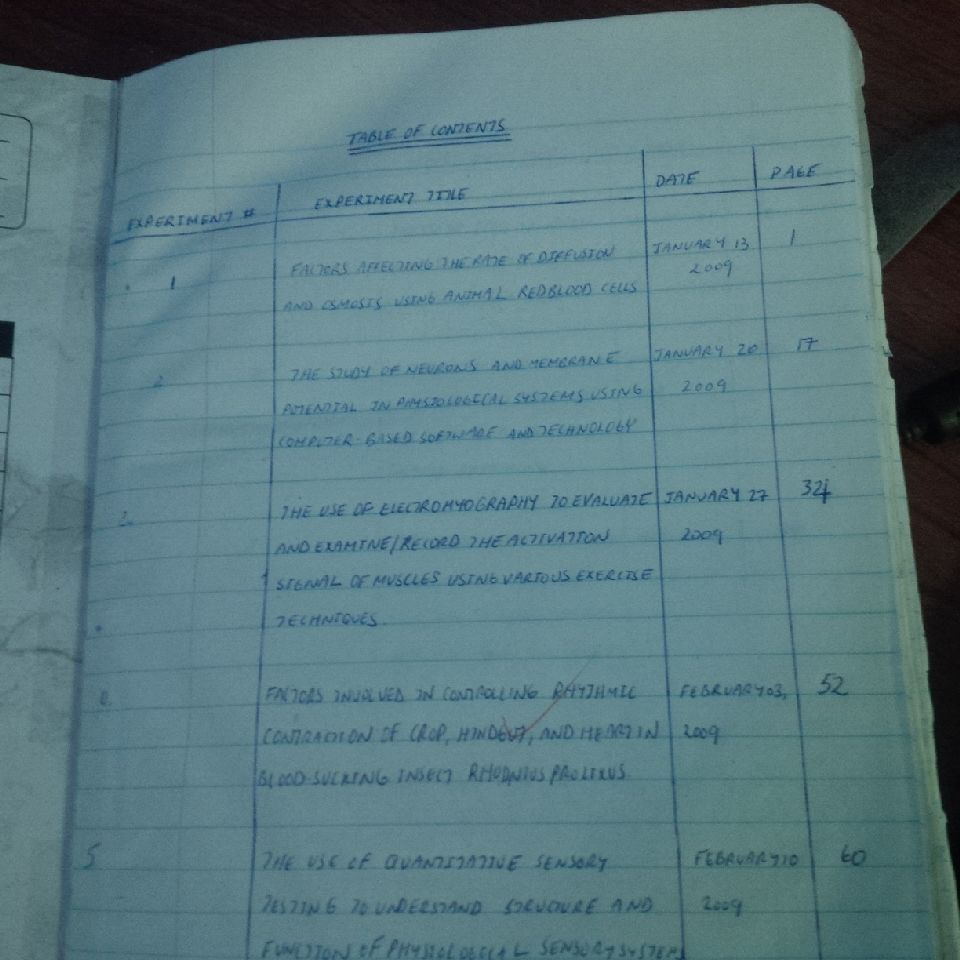 TABLE OF CONTENTS
EXPERIMENT # EXPERIMENT TITLE DATE PAGE
1 FACTORS AFFECTING THE RATE OF DIFFUSION JANUARY 13 1
AND OSMOSIS USING ANIMAL RED BLOOD CELLS 2009
2 THE STUDY OF NEURONS AND MEMBRANE JANUARY 20 17
POTENTIAL IN PHYSIOLOGICAL SYSTEMS USING 2009
COMPUTER-BASED SOFTWARE AND TECHNOLOGY
3 THE USE OF ELECTROMYOGRAPHY TO EVALUATE JANUARY 27 34
AND EXAMINE/RECORD THE ACTIVATION 2009
SIGNAL OF MUSCLES USING VARIOUS EXERCISE
TECHNIQUES.
4 FACTORS INVOLVED IN CONTROLLING RHYTHMIC FEBRUARY 03, 52
CONTRACTION OF CROP, HINDGUT, AND HEART IN 2009
BLOOD SUCKING INSECT RHODNIUS PROLIXUS.
5 THE USE OF QUANTITATIVE SENSORY FEBRUARY 10 60
TESTING TO UNDERSTAND STRUCTURE AND 2009
FUNCTION OF PHYSIOLOGICAL SENSORY SYSTEMS